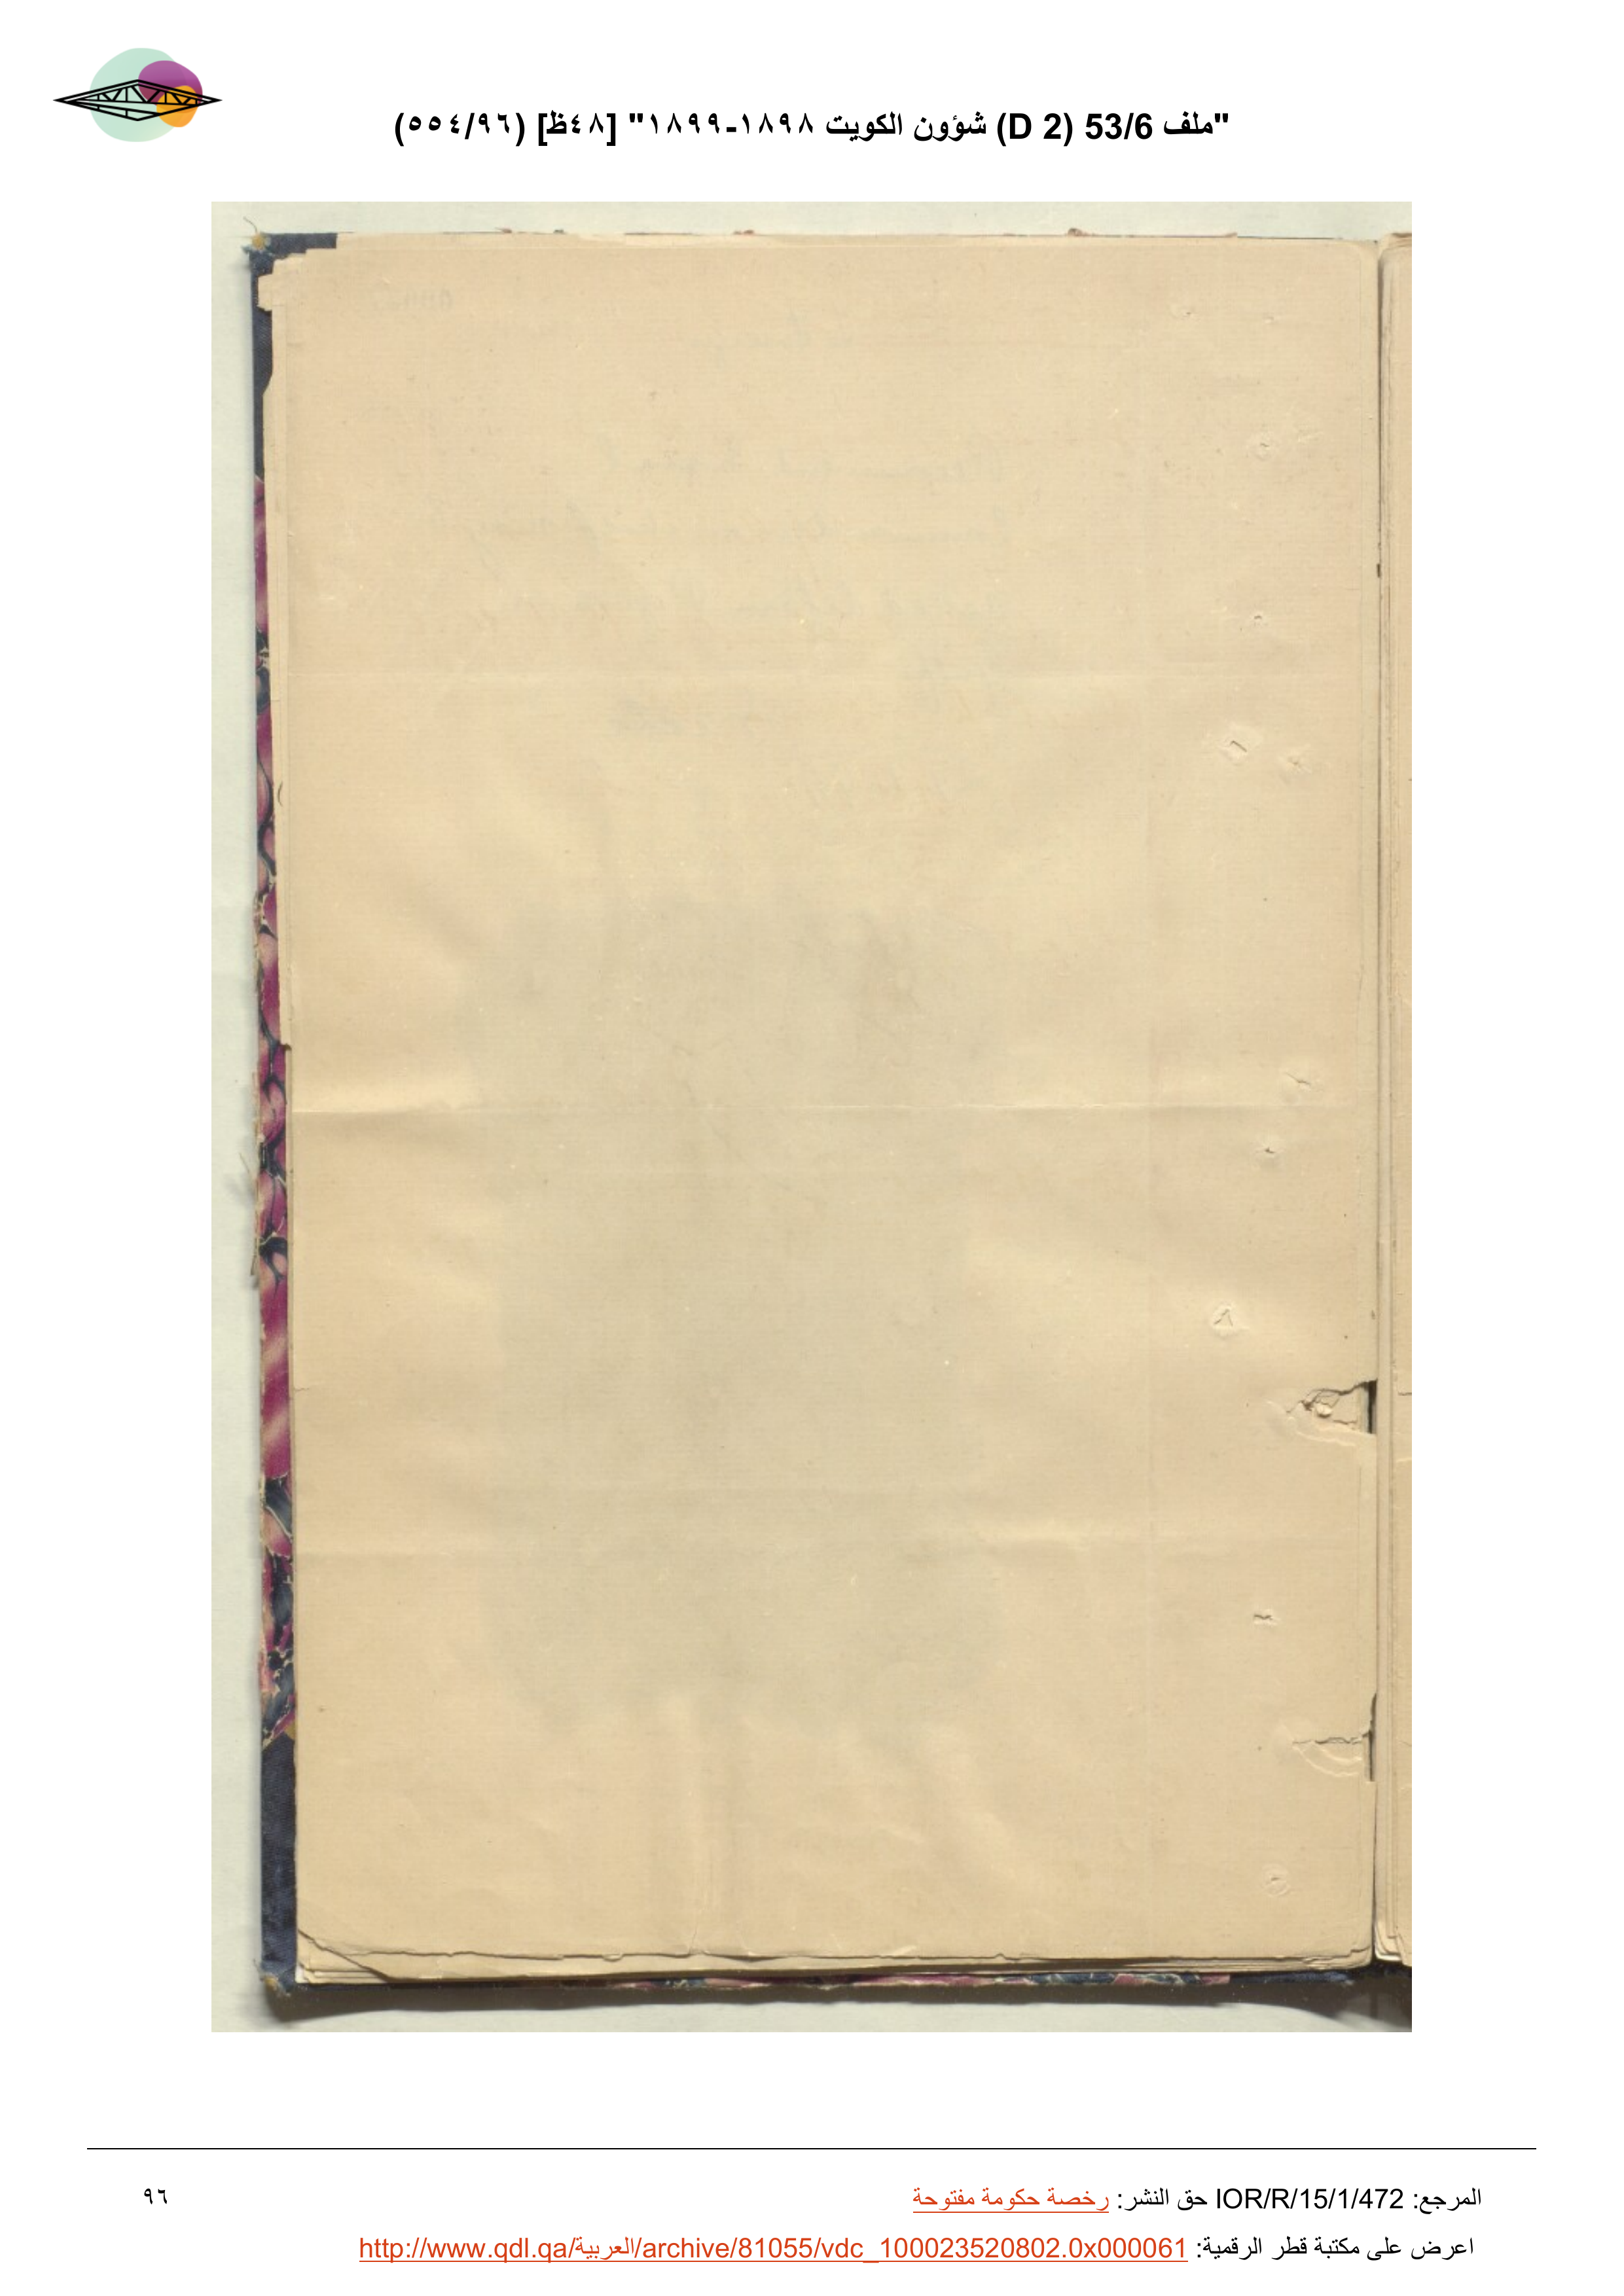 "ملف 53/6 (D 2) شؤون الكويت ١٨٩٨-١٨٩٩" [٤٨ظ] (٥٥٤/٩٦)
المرجع: IOR/R/15/1/472 حق النشر: رخصة حكومة مفتوحة
٩٦
اعرض على مكتبة قطر الرقمية: http://www.qdl.qa/العربية/archive/81055/vdc_100023520802.0x000061